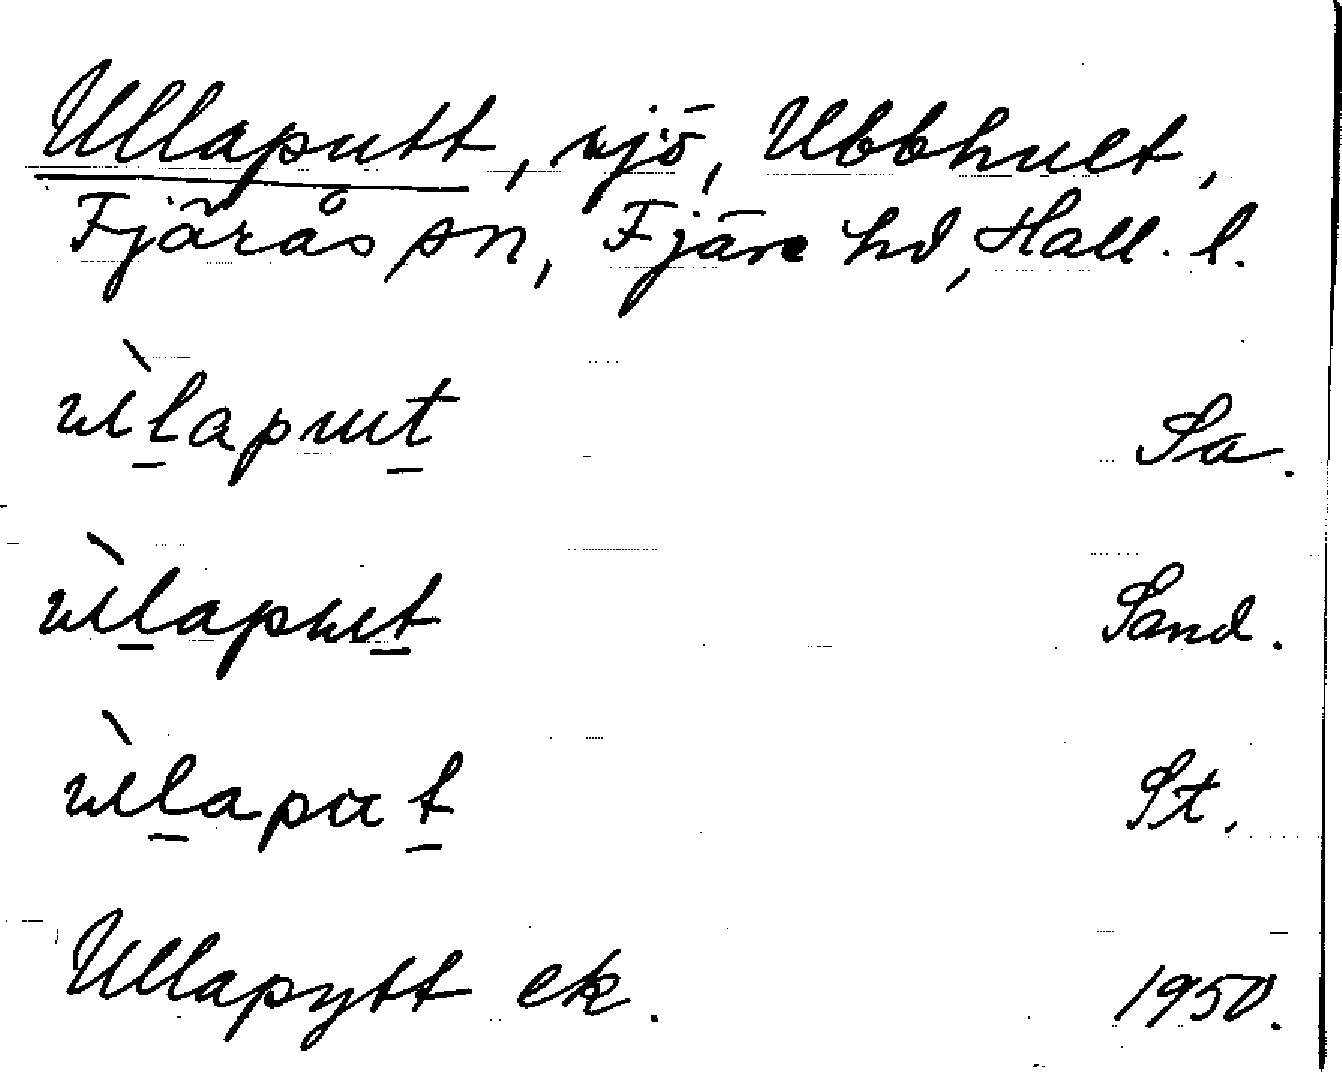 Ullaputt, sjö, Ubbhult,
Fjärås sn, Fjäre hd, Hall. l.
ùl̠aput̠ Sa.
ùl̠aput̠ Sand.
ùl̠aput̠ St.
Ullapytt ek. 1950.